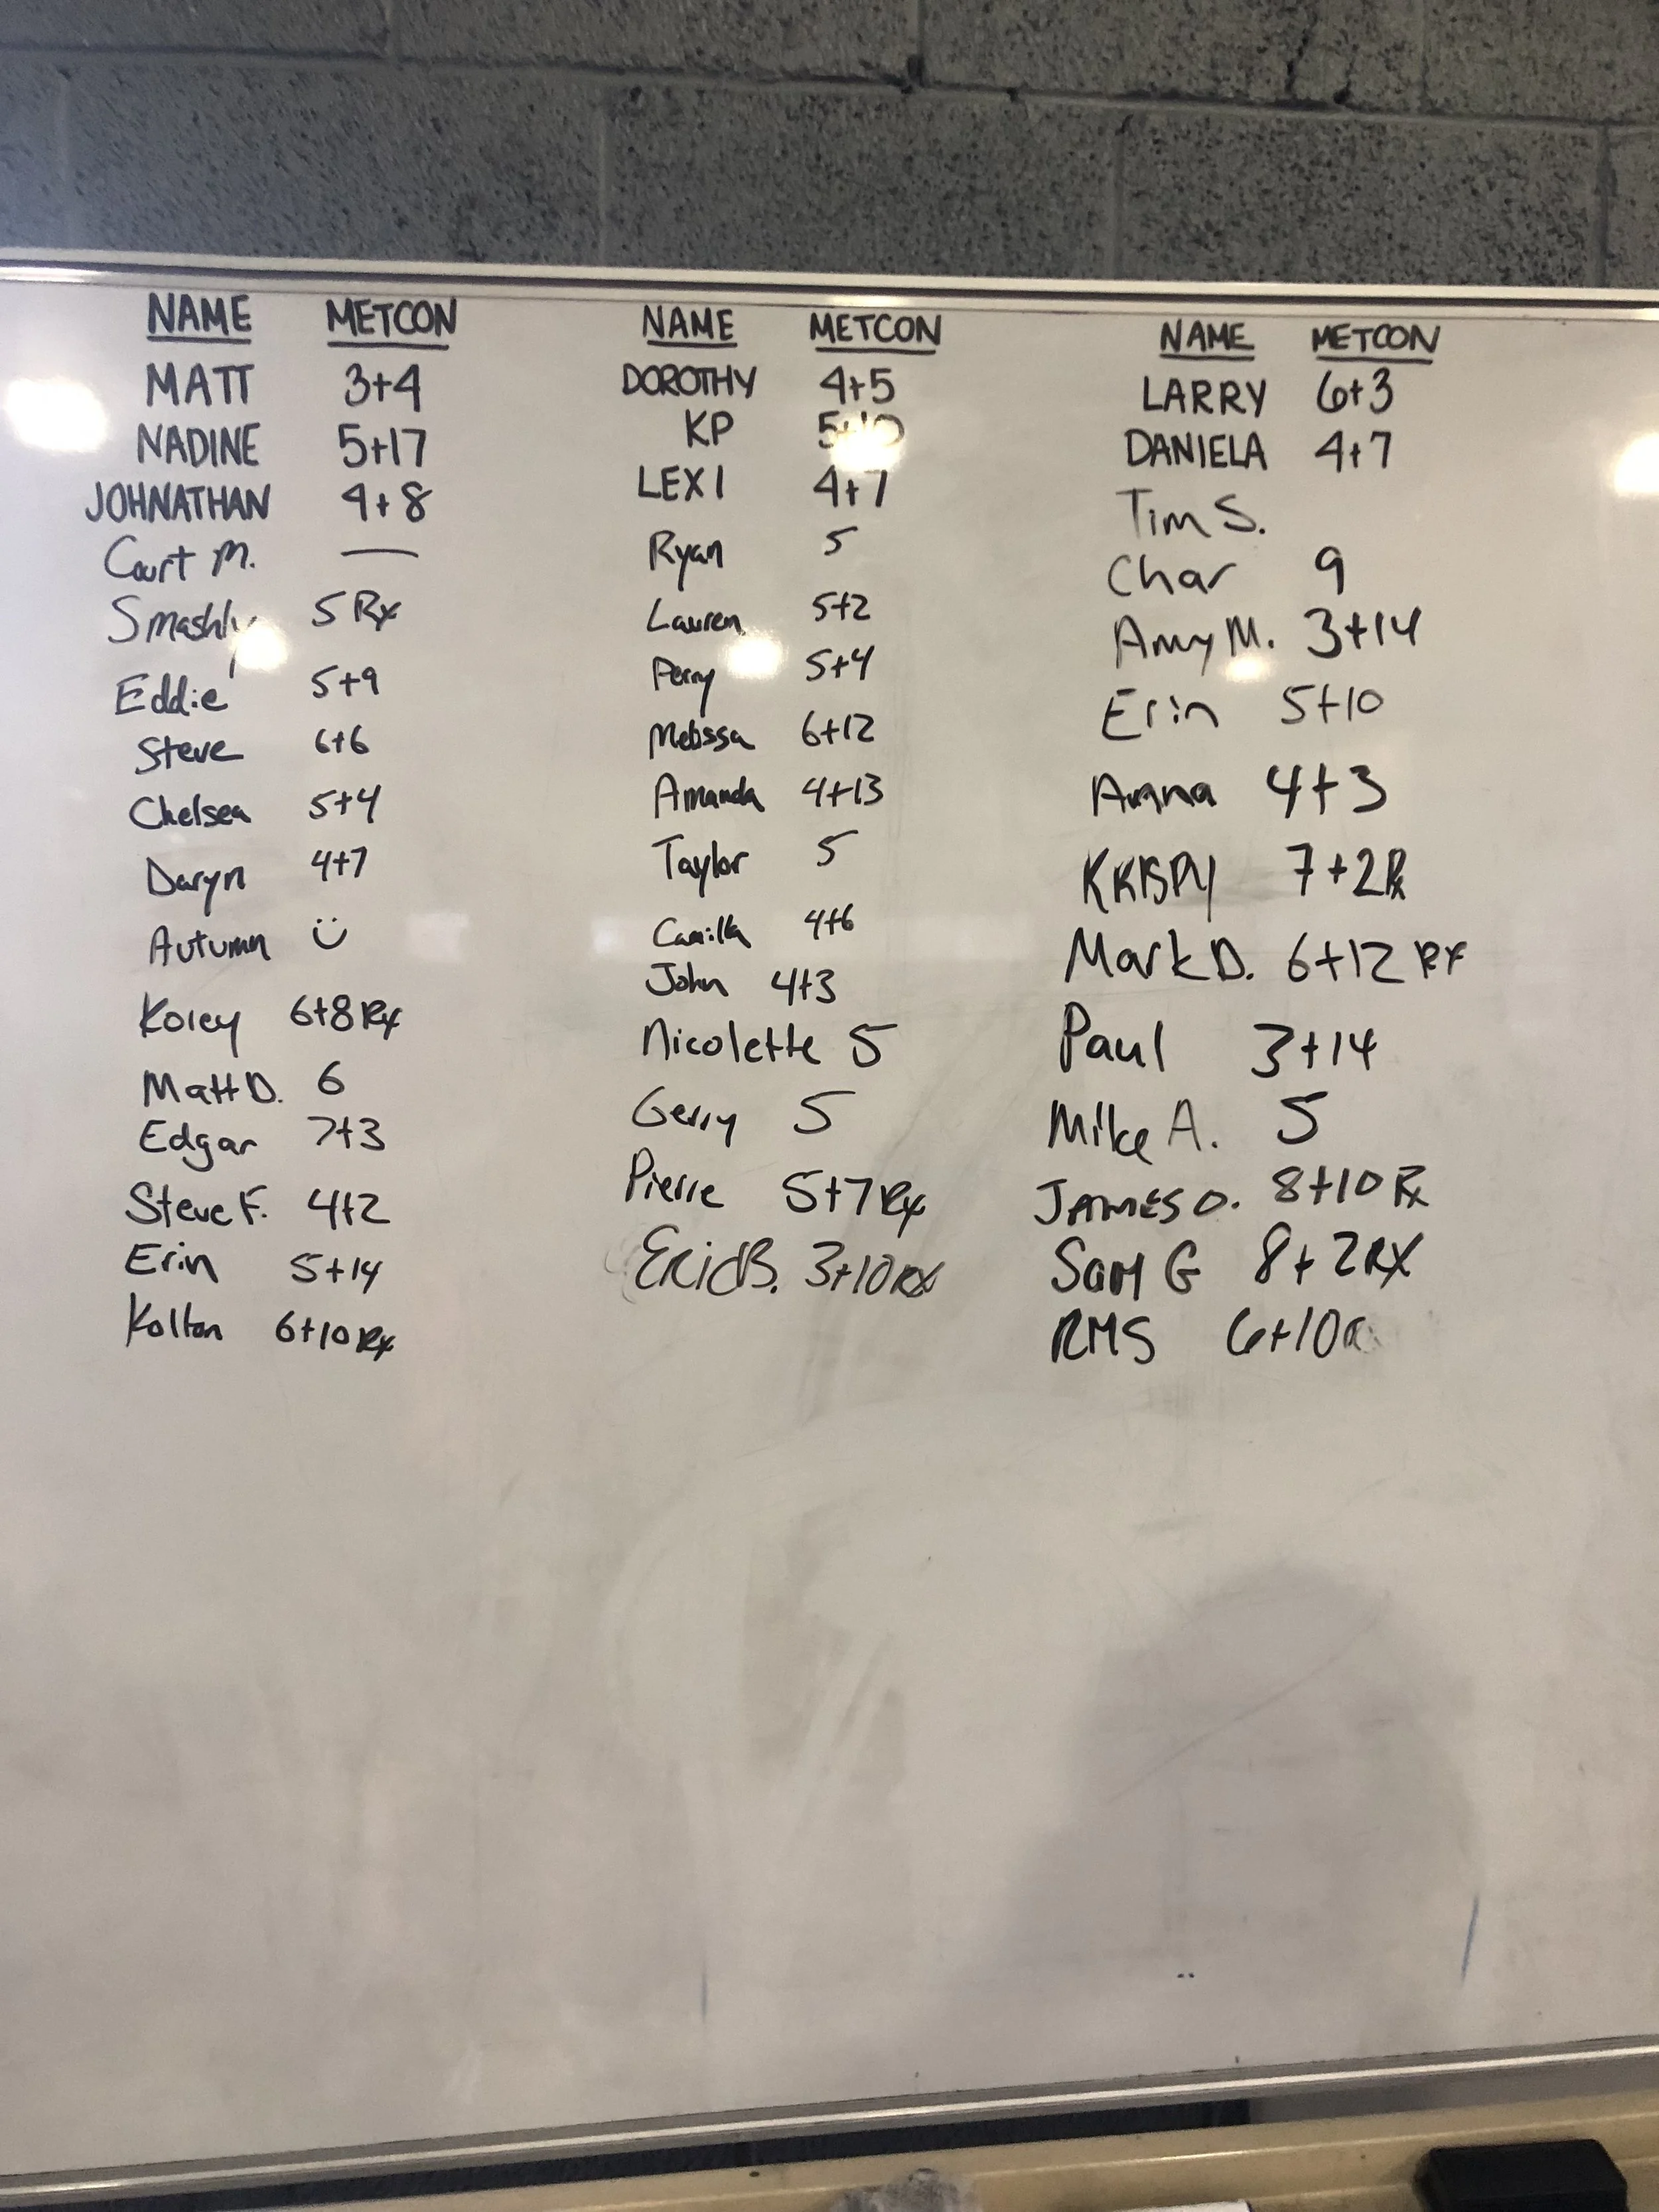 NAME METCON
MATT 3+4
NADINE 5+17
JOHNATHAN 4+8
Court M. —
Smashly 5 Rx
Eddie 5+9
Steve 6+6
Chelsea 5+4
Daryn 4+7
Autumn
Korey 6+8 Rx
Matt D. 6
Edgar 7+3
Steve F. 4+2
Erin 5+14
Kolton 6+10 Rx
NAME METCON
DOROTHY 4+5
KP
LEXI 4+7
Ryan 5
Lauren 5+2
Perry 5+4
Melissa 6+12
Amanda 4+13
Taylor 5
Camilla 4+6
John 4+3
Nicolette 5
Gerry 5
Pierre 5+7 Rx
3+10 RX
NAME METCON
LARRY 6+3
DANIELA 4+7
Tim S.
Char 9
Amy M. 3+14
Erin 5+10
Anna 4+3
7+2 Rx
Mark D. 6+12 RX
Paul 3+14
Mike A. 5
JAMES O. 8+10 Rx
Sam G 8+2 RX
RMS 6+10